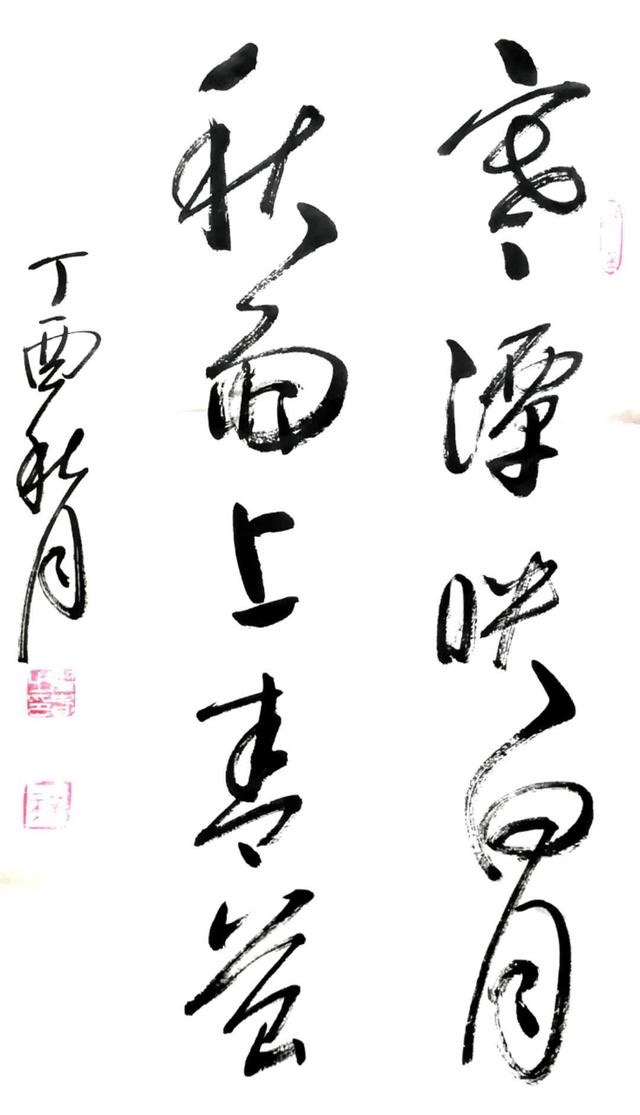 寒潭映白月
秋雨上青苔
丁酉秋月